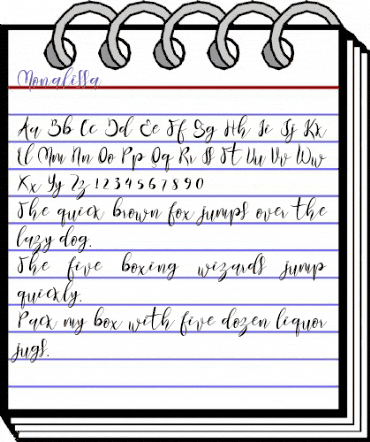 Monalissa
Aa Bb Cc Dd Ee Ff Gg Hh Ii Jj Kk
Ll Mm Nn Oo Pp Qq Rr Ss Tt Uu Vv Ww
Xx Yy Zz 1 2 3 4 5 6 7 8 9 0
The quick brown fox jumps over the
lazy dog.
The five boxing wizards jump
quickly.
Pack my box with five dozen liquor
jugs.